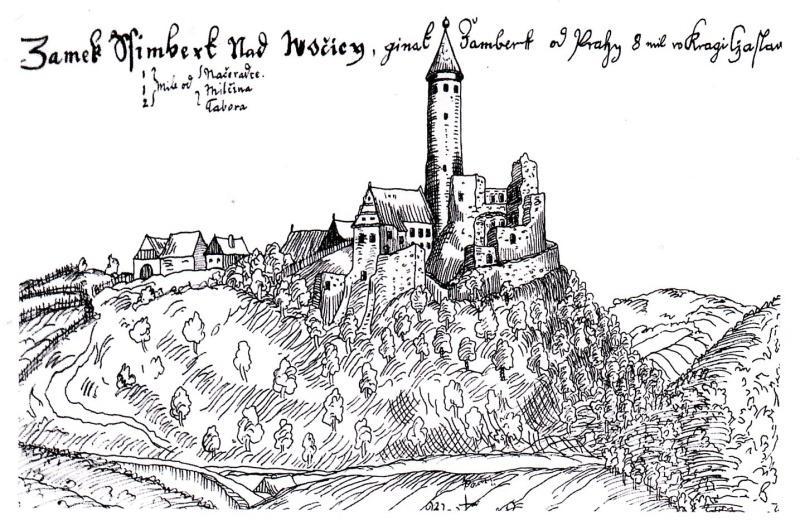 Zamek Ssimberk Nad Wočicy, ginak Žamberk od Prahy 8 mil w Kragi Czaslaw
1 } { Načeradce.
1 } Mile od { Milčina
2 } { Tabora